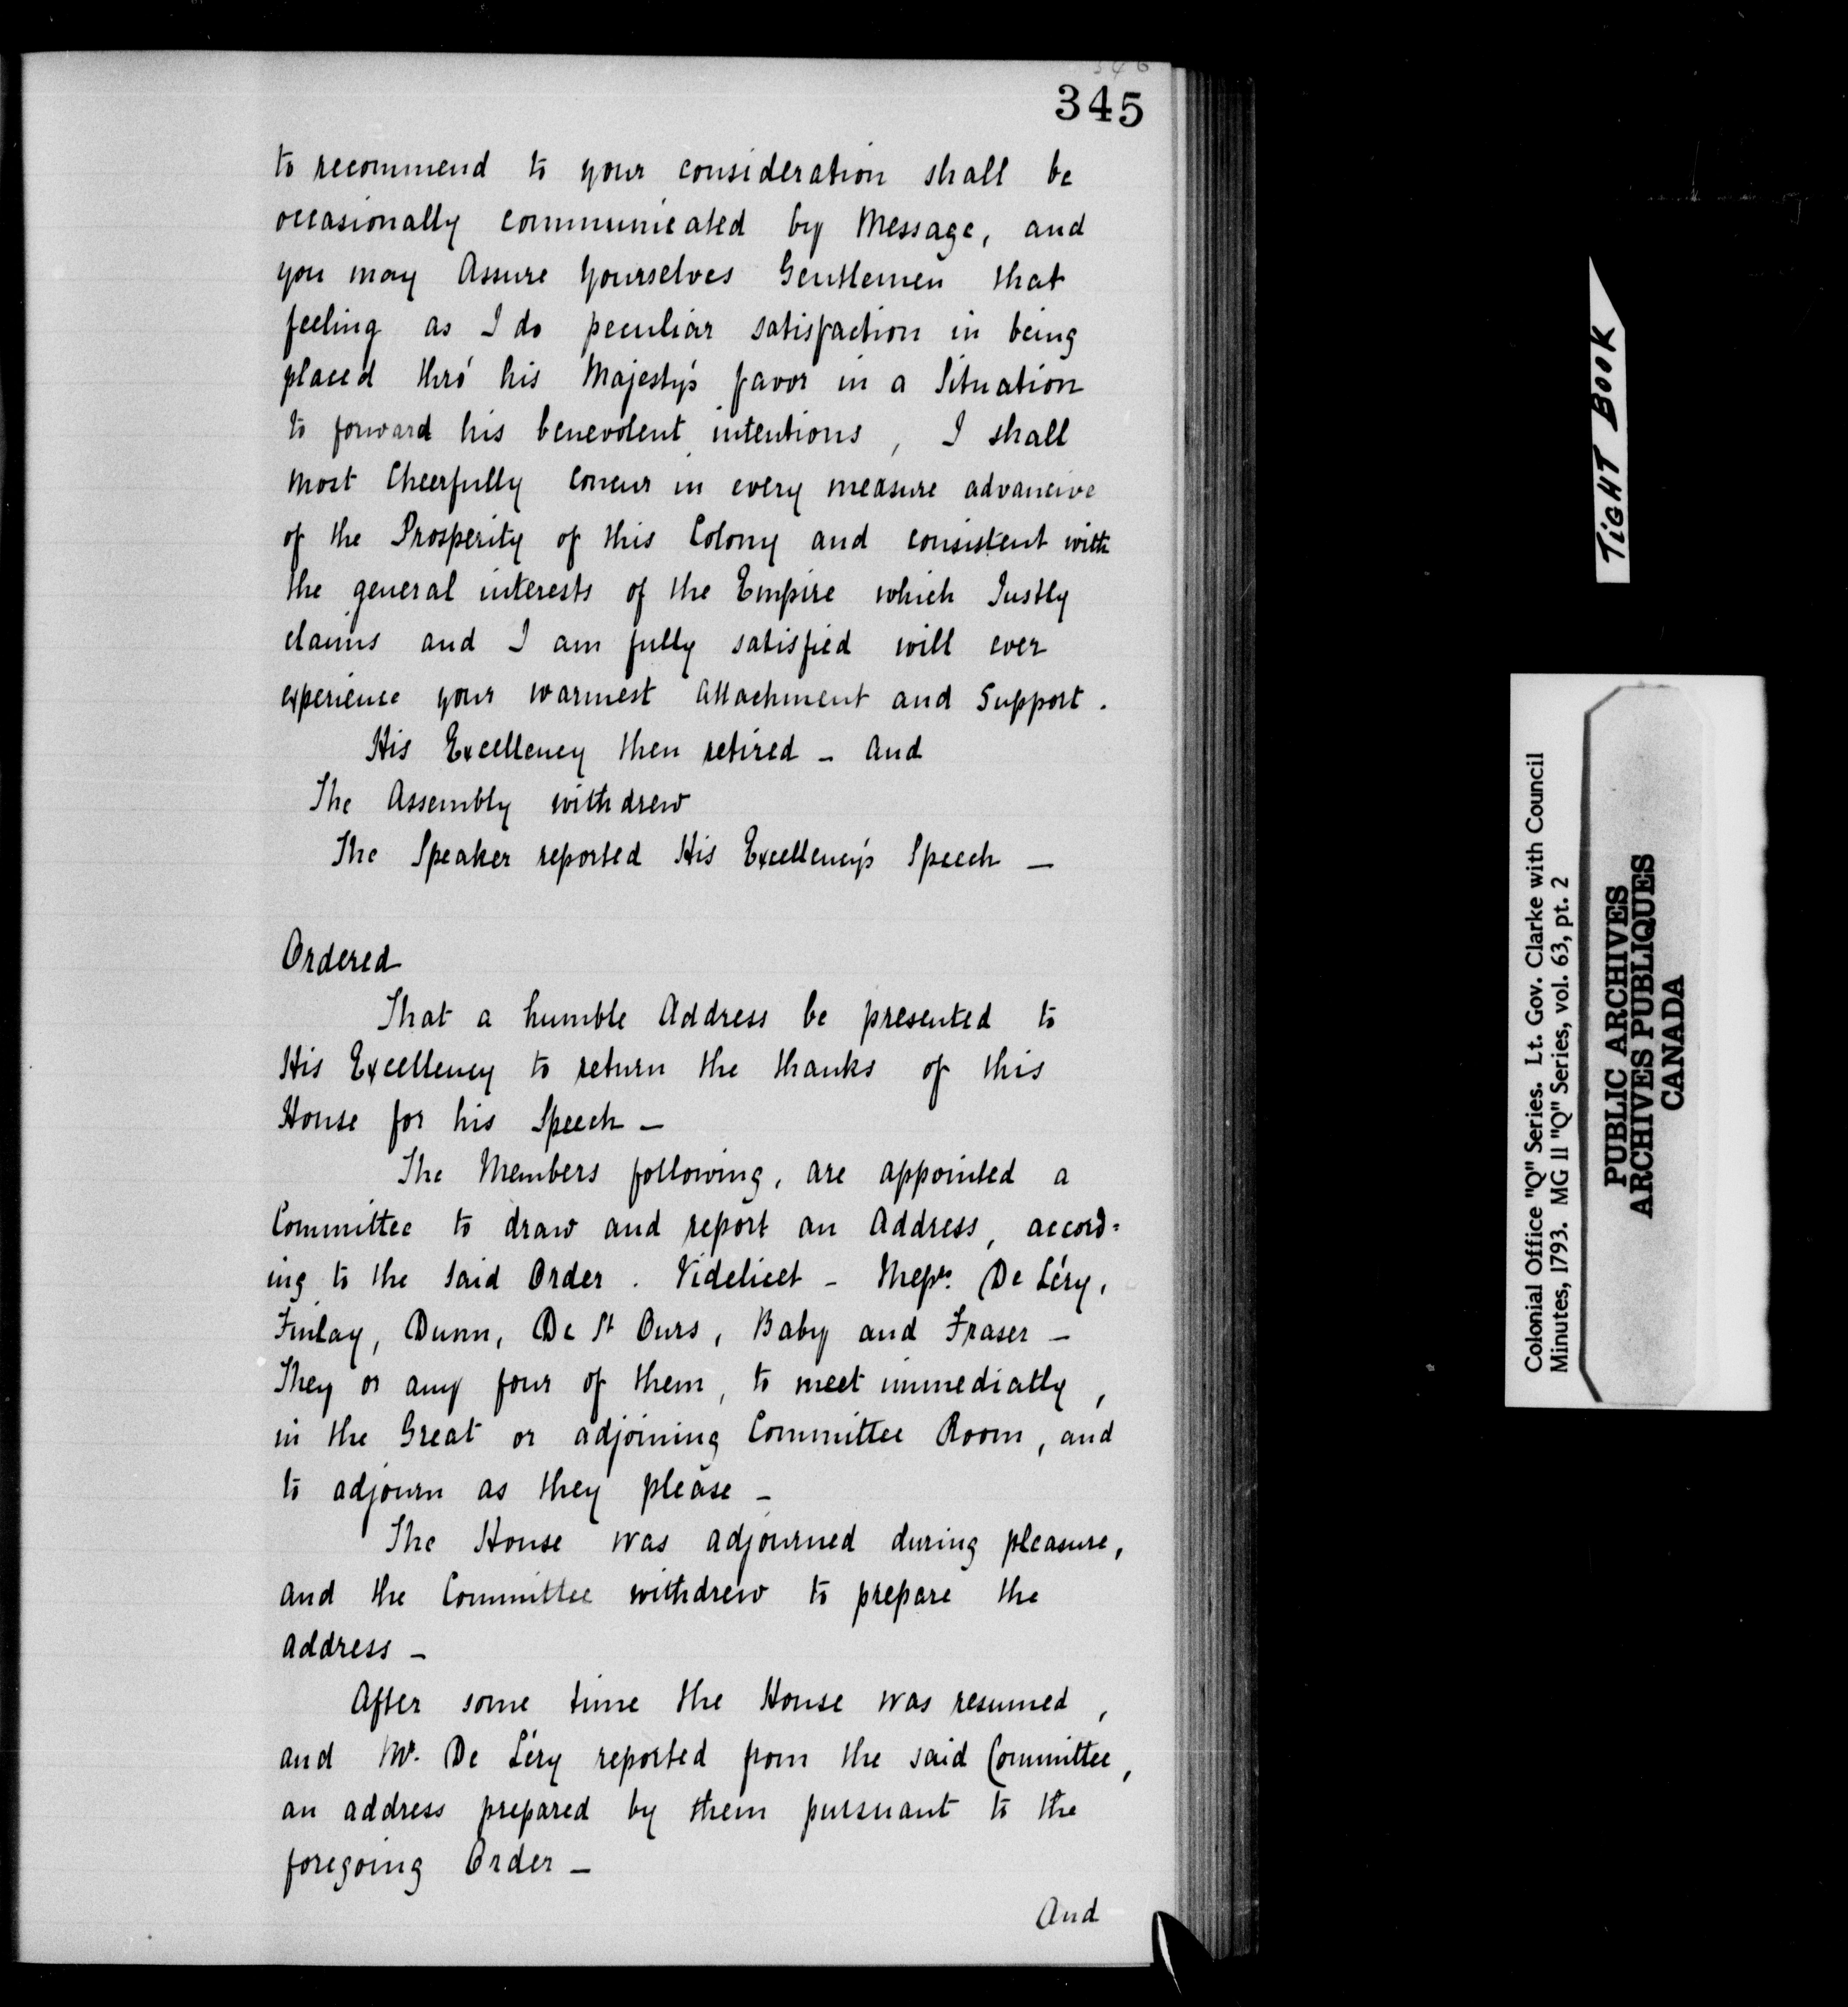 345
to recommend to your consideration shall be
occasionally communicated by Message, and
you may Assure Yourselves Gentlemen that
feeling as I do peculiar satisfaction in being
placed thro' his Majesty's favor in a Situation
to forward his benevolent intentions, I shall
most Cheerfully Concur in every measure advancive
of the Prosperity of this Colony and consistent with
the general interests of the Empire which Justly
claims and I am fully satisfied will ever
experience your warmest Attachment and Support.
His Excellency then retired – and
The Assembly withdrew
The Speaker reported His Excellency's Speech –
Ordered
That a humble Address be presented to
His Excellency to return the thanks of this
House for his Speech –
The Members following, are appointed a
Committee to draw and report an Address, accord=
ing to the said Order. Videlicet – Messrs. De Léry,
Finlay, Dunn, De St Ours, Baby and Fraser –
They or any four of them, to meet immediatly,
in the Great or adjoining Committee Room, and
to adjourn as they please –
The House was adjourned during pleasure,
and the Committee withdrew to prepare the
Address –
After some time the House was resumed,
and Mr. De Léry reported from the said Committee,
an address prepared by them pursuant to the
foregoing Order –
And
TIGHT BOOK
Colonial Office "Q" Series. Lt. Gov. Clarke with Council
Minutes, 1793. MG 11 "Q" Series, vol. 63, pt. 2
PUBLIC ARCHIVES
ARCHIVES PUBLIQUES
CANADA